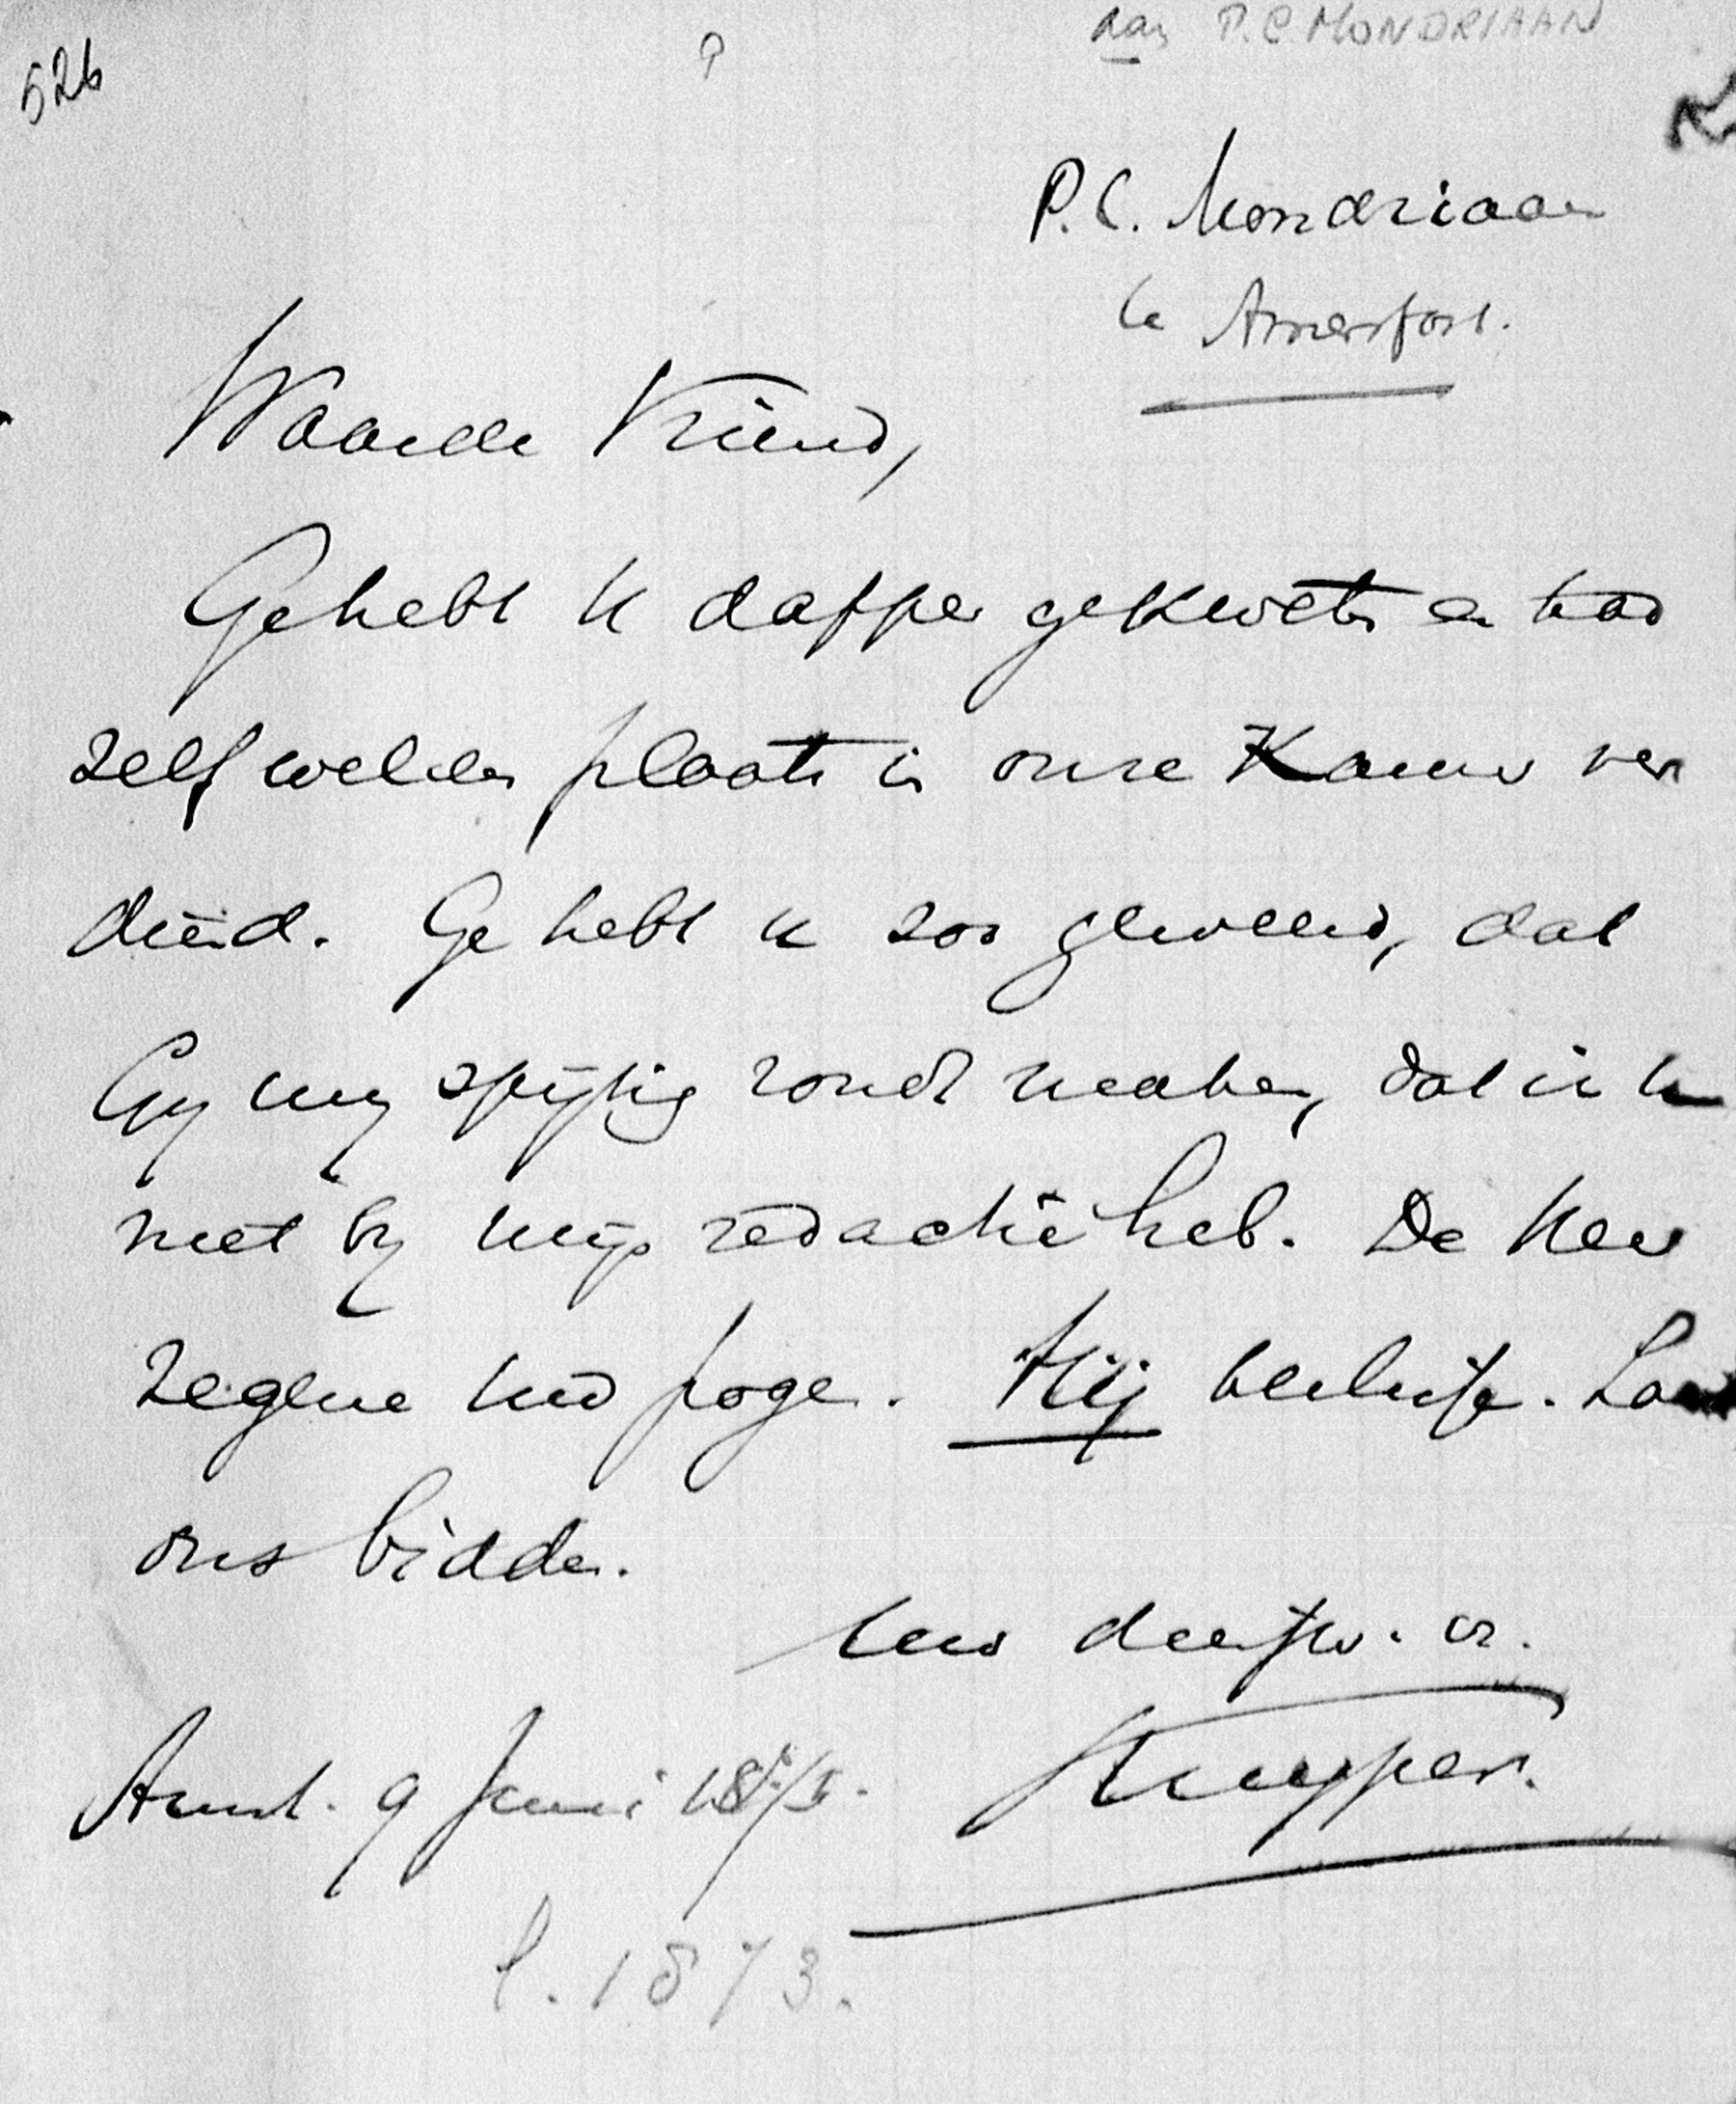 526
aan P.C. MONDRIAAN
P.C. Mondriaan
te Amersfoort.
Waarde Vriend,
Ge hebt U dapper gekweten en had
zelf wel een plaats in onze Kamer ver
diend. Ge hebt U zoo geweerd, dat
Gy my spijtig zoudt maken, dat ik U
niet by mijn redactie heb. De Heer
zegene uw pogen. Hij beslisse. Laat
ons bidden.
Uw dienstw. vr.
Kuyper.
Amst. 9 Juni
l. 1873.